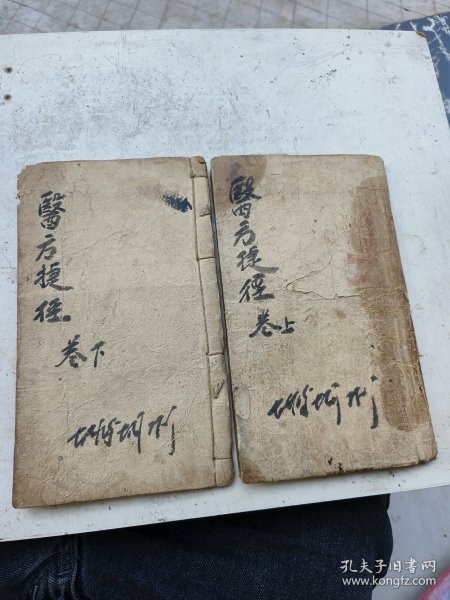 醫方捷徑
卷下
醫方捷徑
卷上
孔夫子旧书网
www.kongfz.com